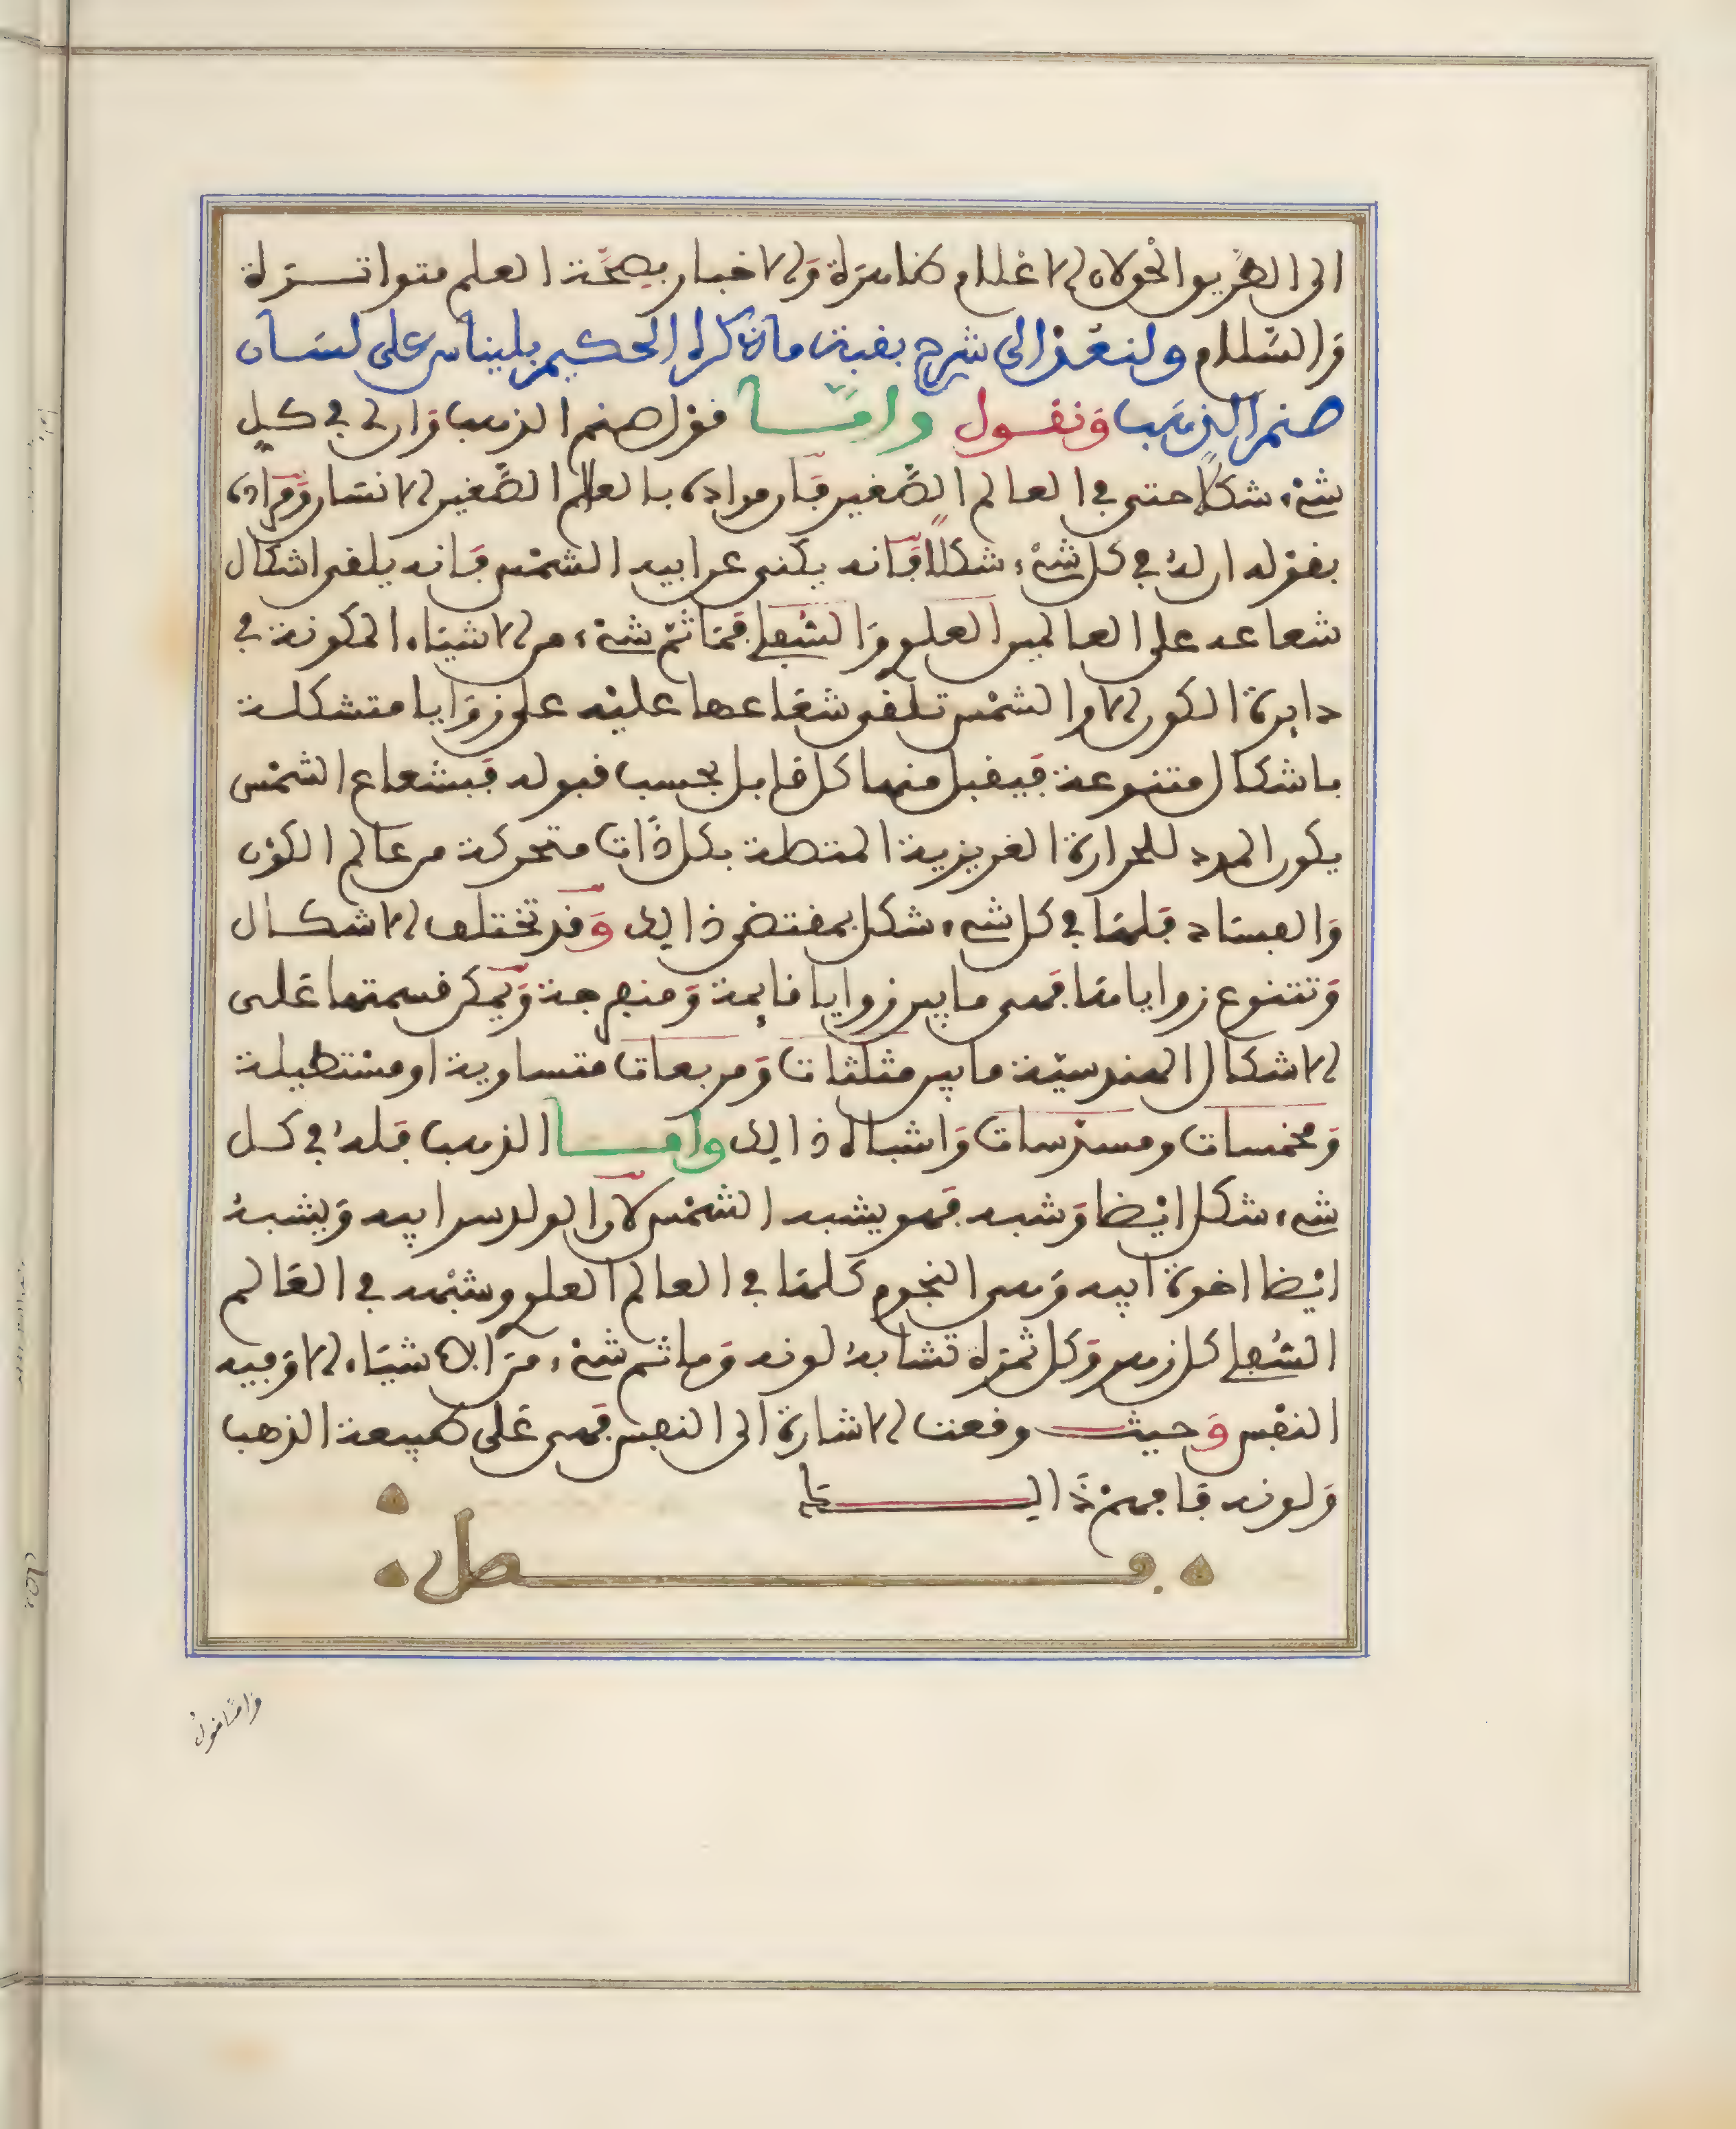 الى الطريق والحق لان الاعلام ظاهرة والاخبار بصحة العلم متواترة
والسلام ولنعد الى شرح بقية ما ذكره الحكيم بليناس على لسان
صنم الذهب ونقول وامّا قول صنم الذهب وان لي في كل
شيء شكلاً حتى في العالم الصّغير فان مراده بالعالم الصّغير الانسان ومراده
بقوله ان له في كل شيء شكلاً فانه يكنى عن ابيه الشمس فانه يلقى اشكال
شعاعه على العالمين العلوي والسفلي فما ثم شيء من الاشياء المكونة في
دايرة الكون الا والشمس تلقى شعاعها عليه على زوايا متشكلة
باشكال متنوعة فيقبل منها كل قابل بحسب قبوله فبشعاع الشمس
يكون المدد للحرارة الغريزية المتصلة بكل ذات متحركة من عالم الكون
والفساد فلها في كل شيء شكل بمقتضى ذالك وقد تختلف الاشكال
وتتنوع زواياها فهى ما بين زوايا قايمة ومنفرجة ويمكن قسمتها على
الاشكال الهندسية ما بين مثلثات ومربعات متساوية او مستطيلة
ومخمسات ومسدسات واشباه ذالك وامــا الذهب فله في كل
شيء شكل ايضا وشبه فهو يشبه الشمس لان الولد سر ابيه ويشبه
ايضا اخوة ابيه وهى النجوم كلها في العالم العلوي وشبهه في العالم
السفلي كل زهر وكل ثمرة تشابه لونه وما ثم شيء من الاشياء الا وفيه
النفس وحيث وقعت الاشارة الى النفس فهى على طبيعة الذهب
ولونه فافهم ذالك
فصل
واما قول